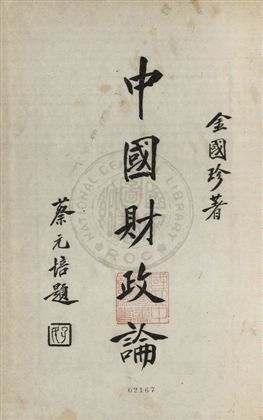 金國珍著
中國財政論
蔡元培題
NATIONAL CENTRAL LIBRARY
ROC
62167